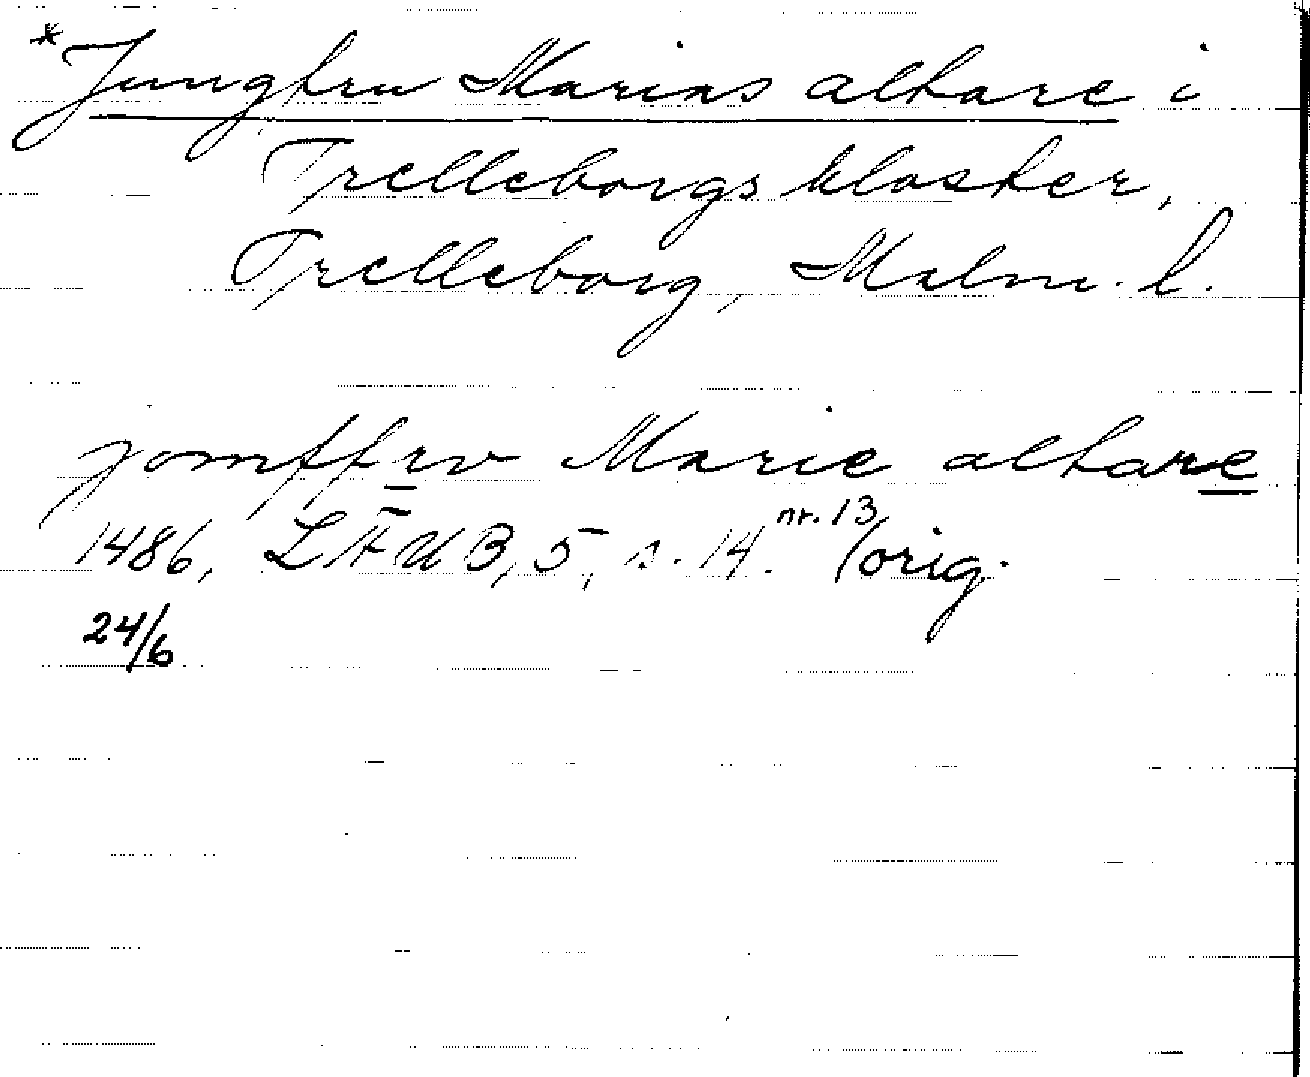 *Jungfru Marias altare i
Trelleborgs kloster,
Trelleborg, Malm. l.
jomffrv Marie altare
1486, LÄUB, 5, s. 14. nr. 13 (orig.
24/6